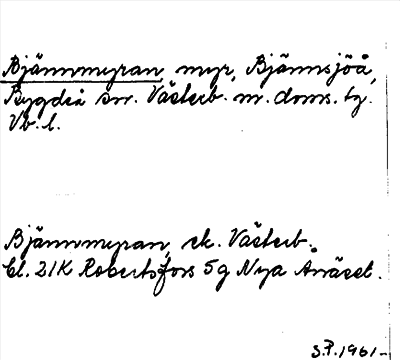 Bjännmyran, myr, Bjännsjöå,
Bygdeå sn. Västerb. n. doms. tg.
Vb. l.
Bjännmyran, ek. Västerb.
bl. 21K Robertsfors 5g Nya Ånäset.
S.P. 1961-